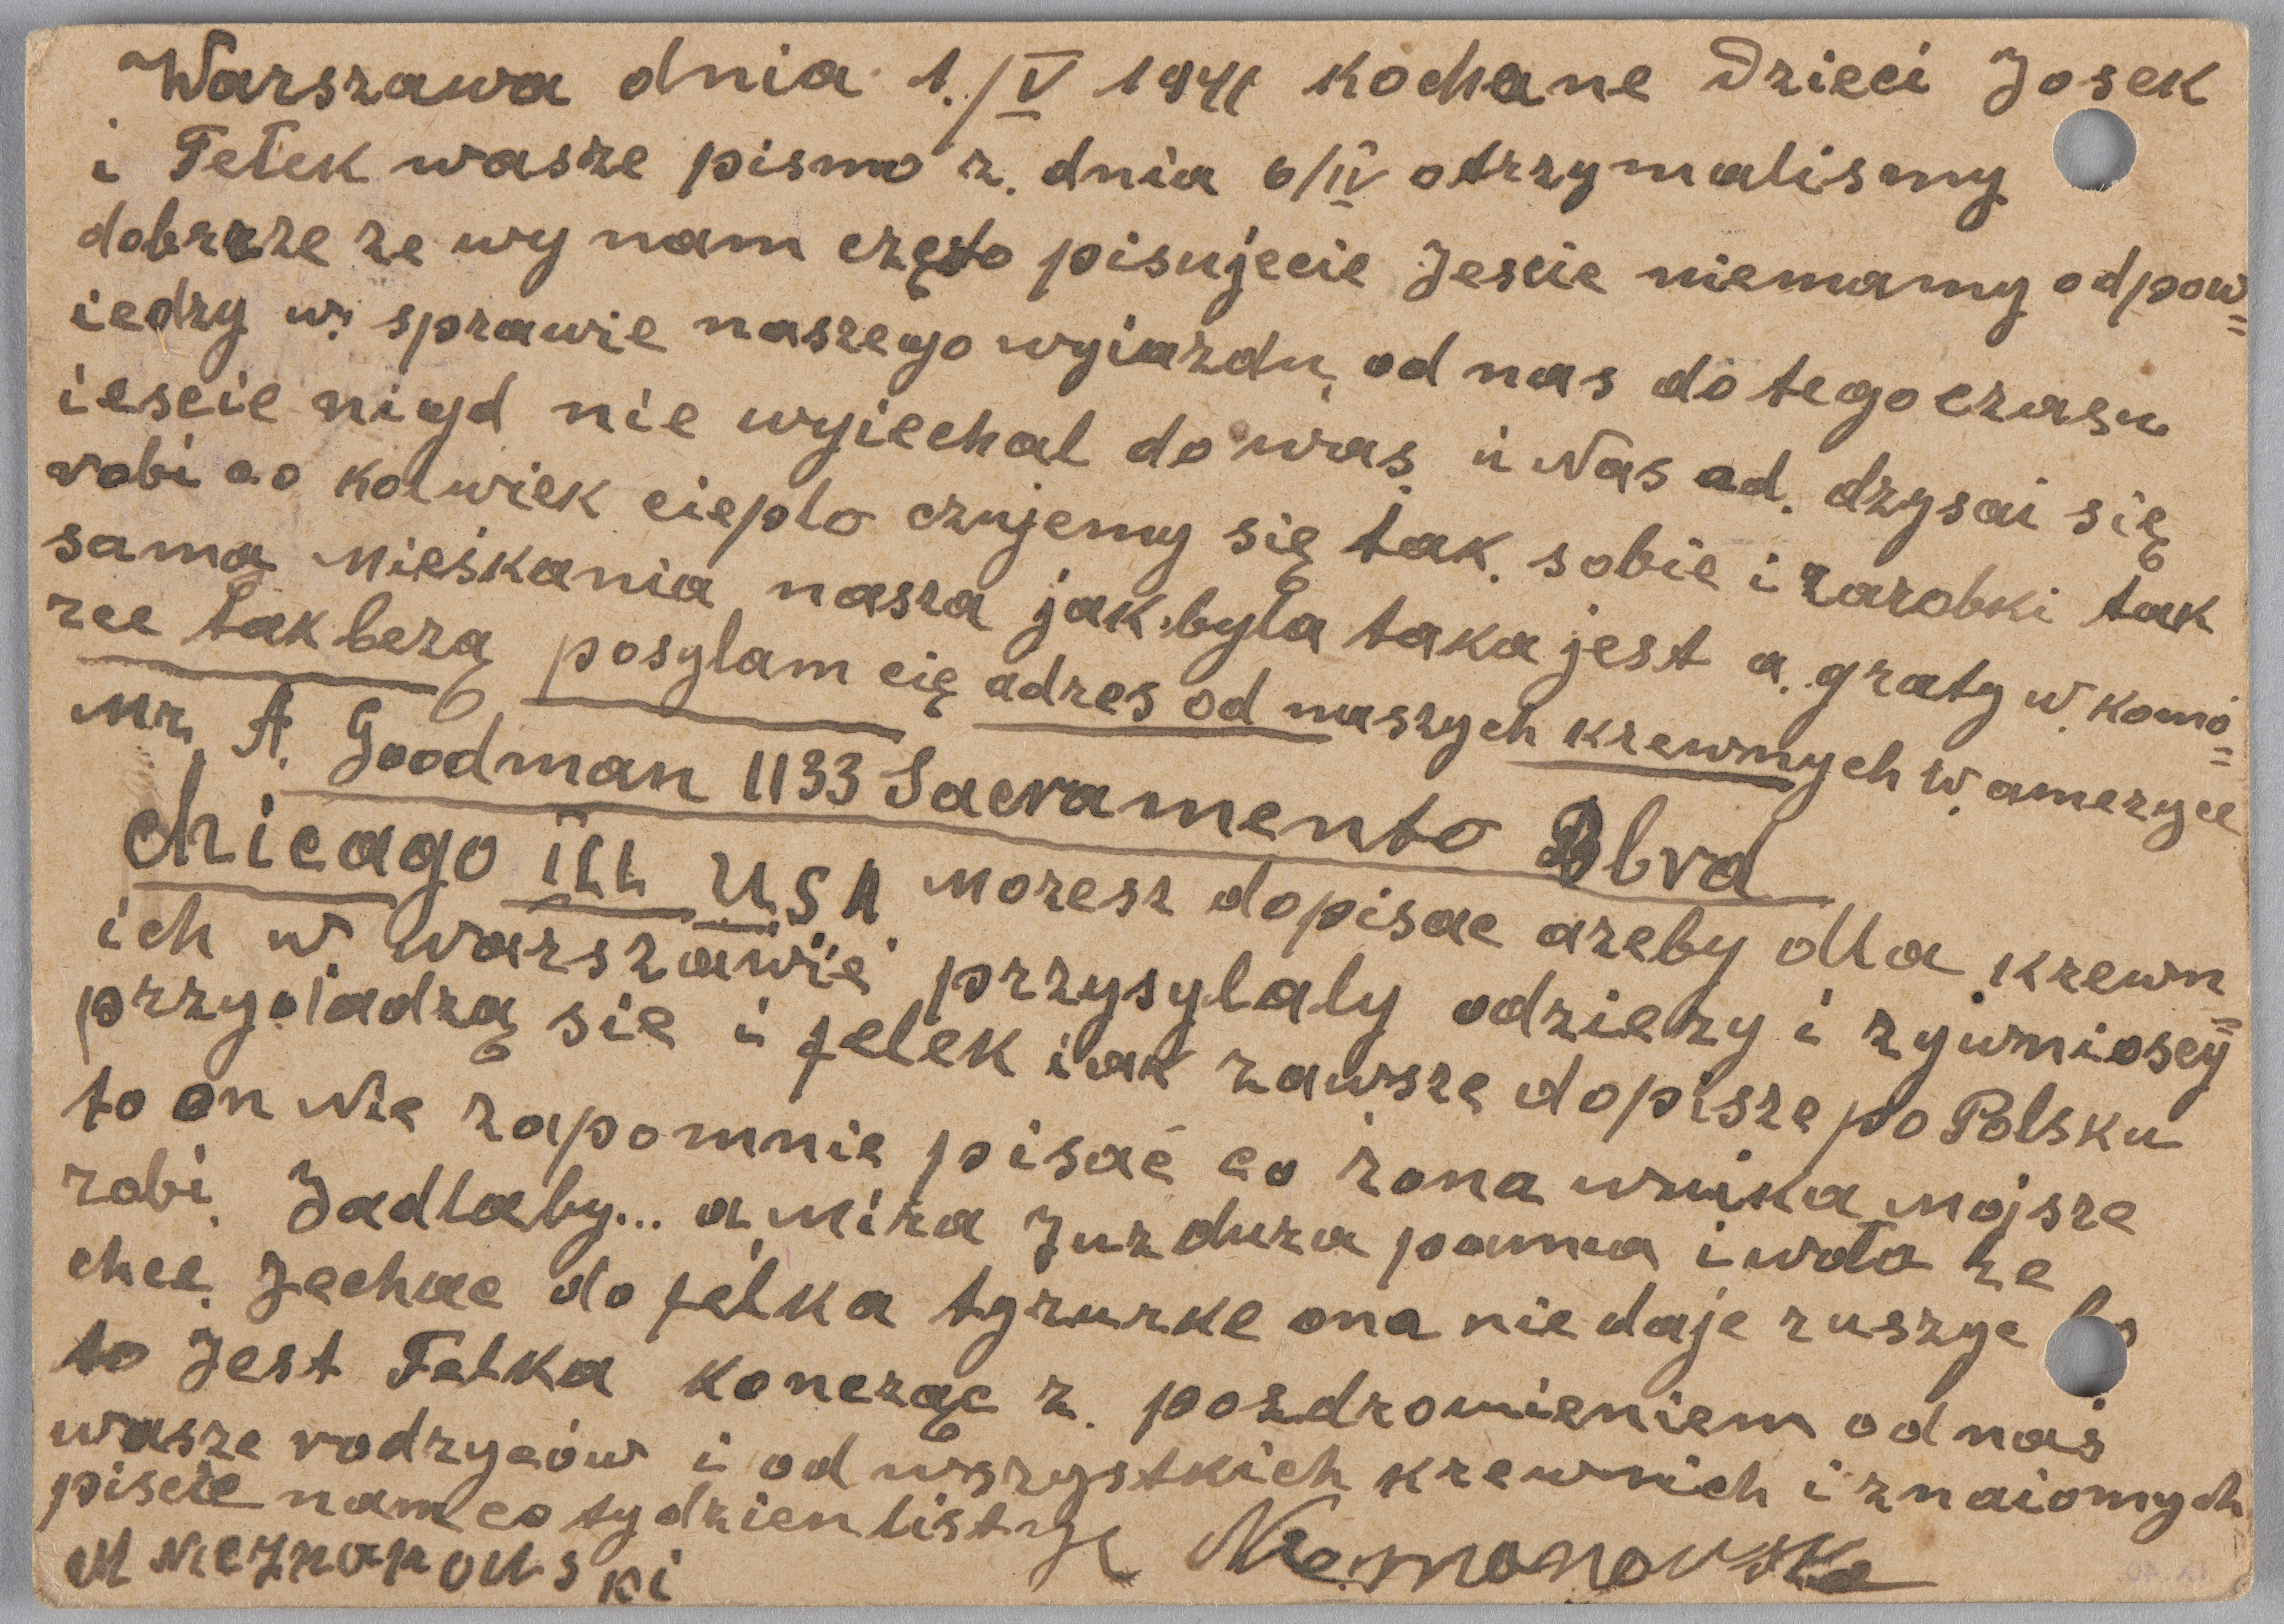 Warszawa dnia 1./V 1941 kochane Dzieci Josek
i Felek wasze pismo z. dnia 6/IV otrzymalismy
dobrze ze wy nam często pisujecie Jescie niemamy odpow=
iedzy w. sprawie naszego wyiazdu, od nas do tego czasu
iescie nigd nie wyiechal do was. u Nas od. dzysai się
robi co kolwiek cieplo czujemy się tak. sobie i zarobki tak
sama Mieskania nasza jak.byla taka jest a. graty w. komó=
rce tak bezą posylam cię adres od naszych krewnych w. ameryce
Mr. A. Goodman 1133 Sacramento Blvd
Chicago ILL USA. Mozesz dopisac azeby dla krewn=
ich w. warszawie przysylaly odziezy i zywnioscy
przygladzą sie i felek iak zawsze dopisze po Polsku
to on Nie zapomnie pisać co zona wnuka Mojsze
robi. Jadlaby... a Mira Juz duza panna i wola ze
chce. Jechac do felka tyrurke ona nie daje ruszyc bo
to Jest Felka koncząc z. pozdrowieniem od nas
wasze rodzyców i od wszystkich krewnich i znaiomych
piscie nam co tydzien listy
M Nieznanowski